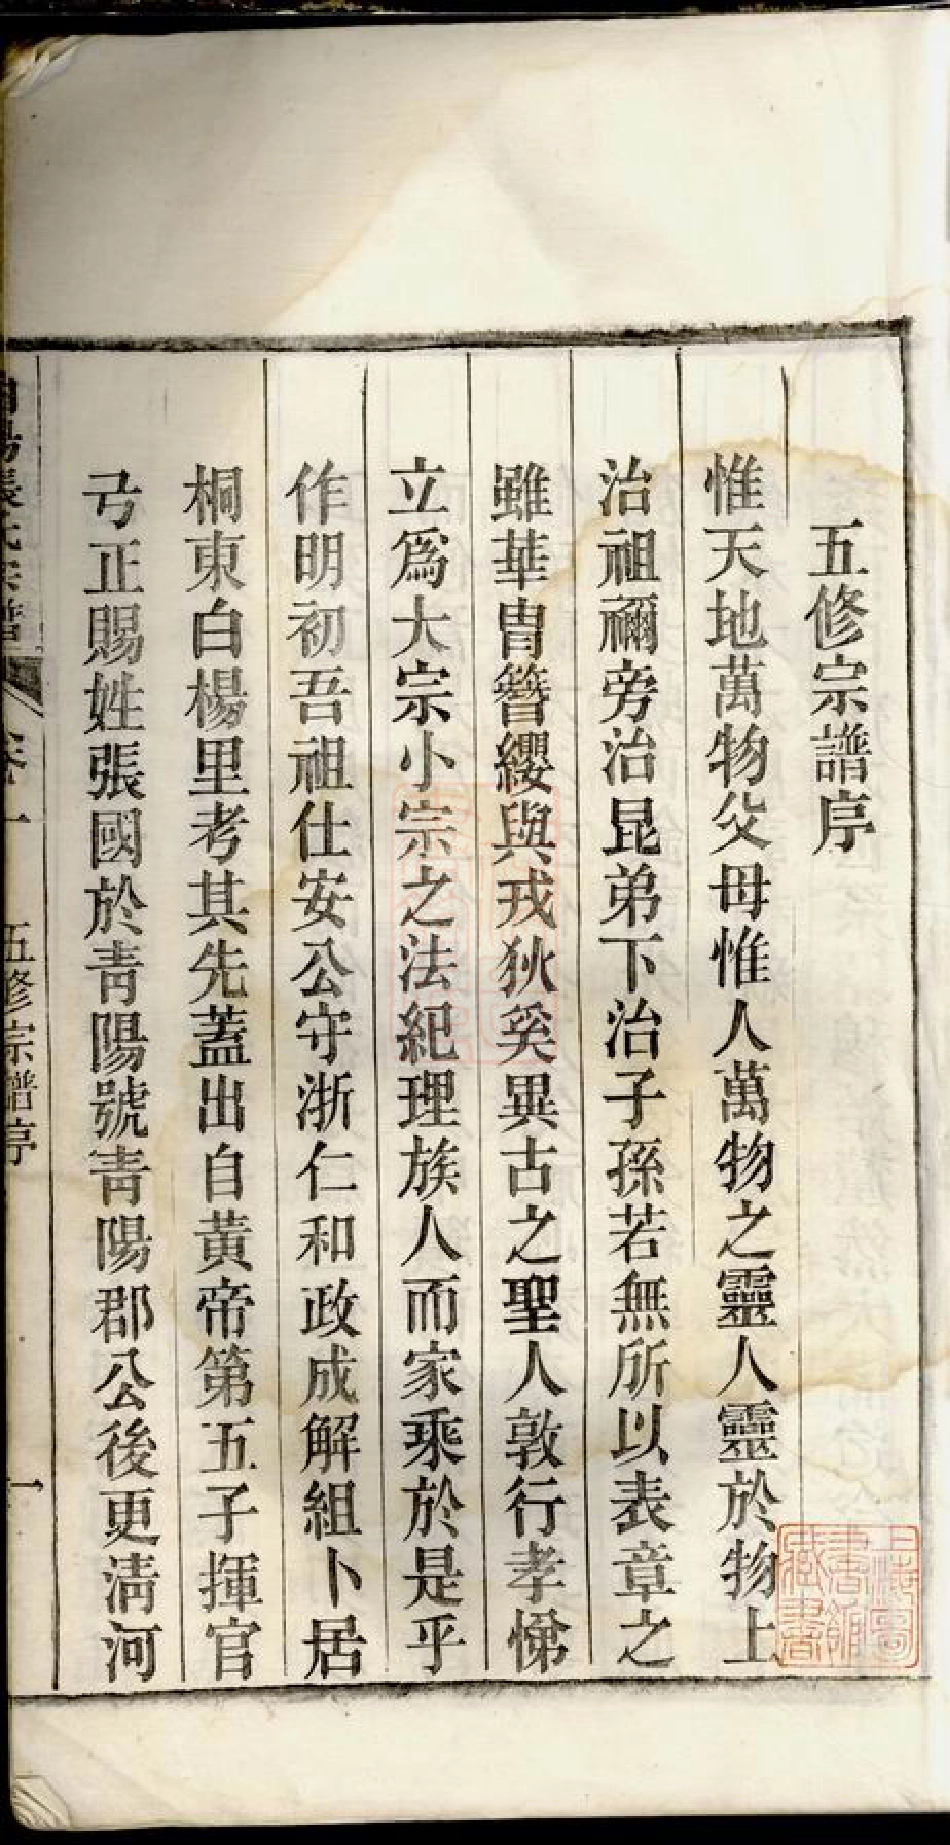 五修宗譜序
惟天地萬物父母惟人萬物之靈人靈於物上
治祖禰旁治昆弟下治子孫若無所以表章之
雖華胄簪纓與戎狄奚異古之聖人敦行孝悌
立爲大宗小宗之法紀理族人而家乘於是乎
作明初吾祖仕安公守浙仁和政成解組卜居
桐東白楊里考其先蓋出自黃帝第五子揮官
弓正賜姓張國於青陽號青陽郡公後更清河
張氏宗譜 卷一 五修宗譜序 一
上海圖書館藏書